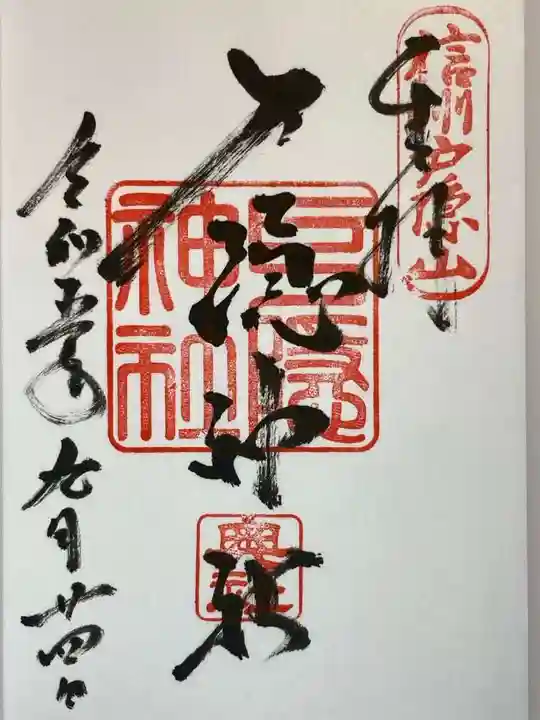 信州戸隠山
奉拝
戸隠神社
戸隠神社
奥社
令和五年九月廿四日